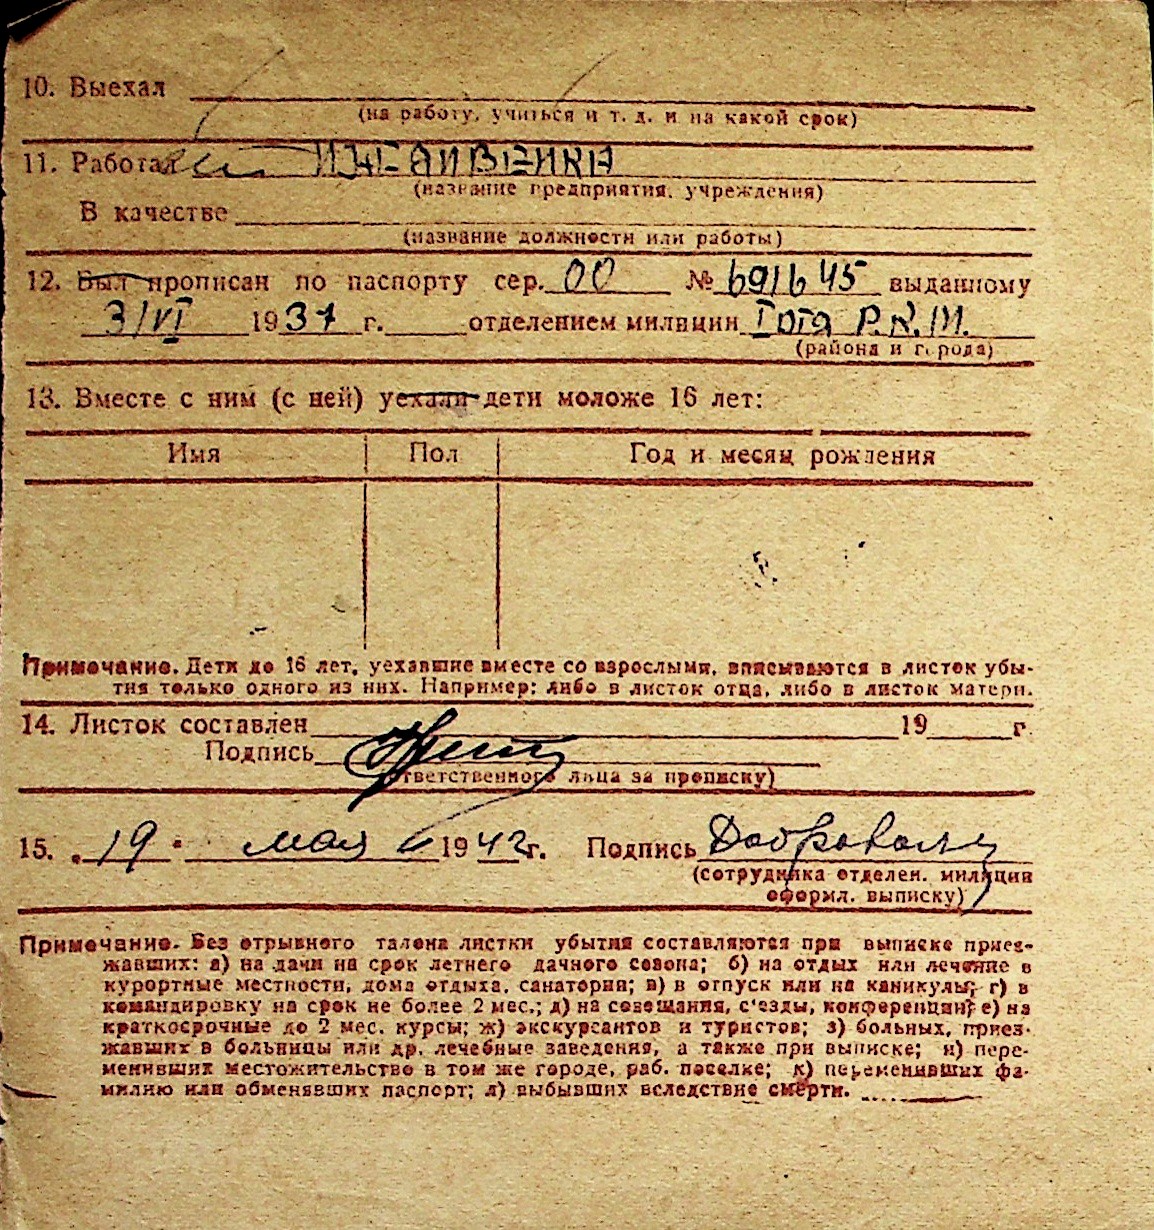 10. Выехал
(на работу, учиться и т. д. и на какой срок)
11. Работал ИЖДИВЕНКА
(название предприятия, учреждения)
В качестве
(название должности или работы)
12. Был прописан по паспорту сер. 00 № 691645 выданному
3/VI 1937 г. отделением милиции Р.К.М.
(района и города)
13. Вместе с ним (с ней) уехали дети моложе 16 лет:
Имя Пол Год и месяц рождения
Примечание. Дети до 16 лет, уехавшие вместе со взрослыми, вписываются в листок убы-
тия только одного из них. Например: либо в листок отца, либо в листок матери.
14. Листок составлен 19 г.
Подпись
(ответственного лица за прописку)
15. „19" мая 1942 г. Подпись
(сотрудника отделен. милиции
оформл. выписку)
Примечание. Без отрывного талона листки убытия составляются при выписке приез-
жавших: а) на дачи на срок летнего дачного сезона; б) на отдых или лечение в
курортные местности, дома отдыха, санатории; в) в отпуск или на каникулы; г) в
командировку на срок не более 2 мес.; д) на совещания, с'езды, конференции; е) на
краткосрочные до 2 мес. курсы; ж) экскурсантов и туристов; з) больных, приез-
жавших в больницы или др. лечебные заведения, а также при выписке; и) пере-
менивших местожительство в том же городе, раб. поселке; к) переменивших фа-
милию или обменявших паспорт; л) выбывших вследствие смерти.